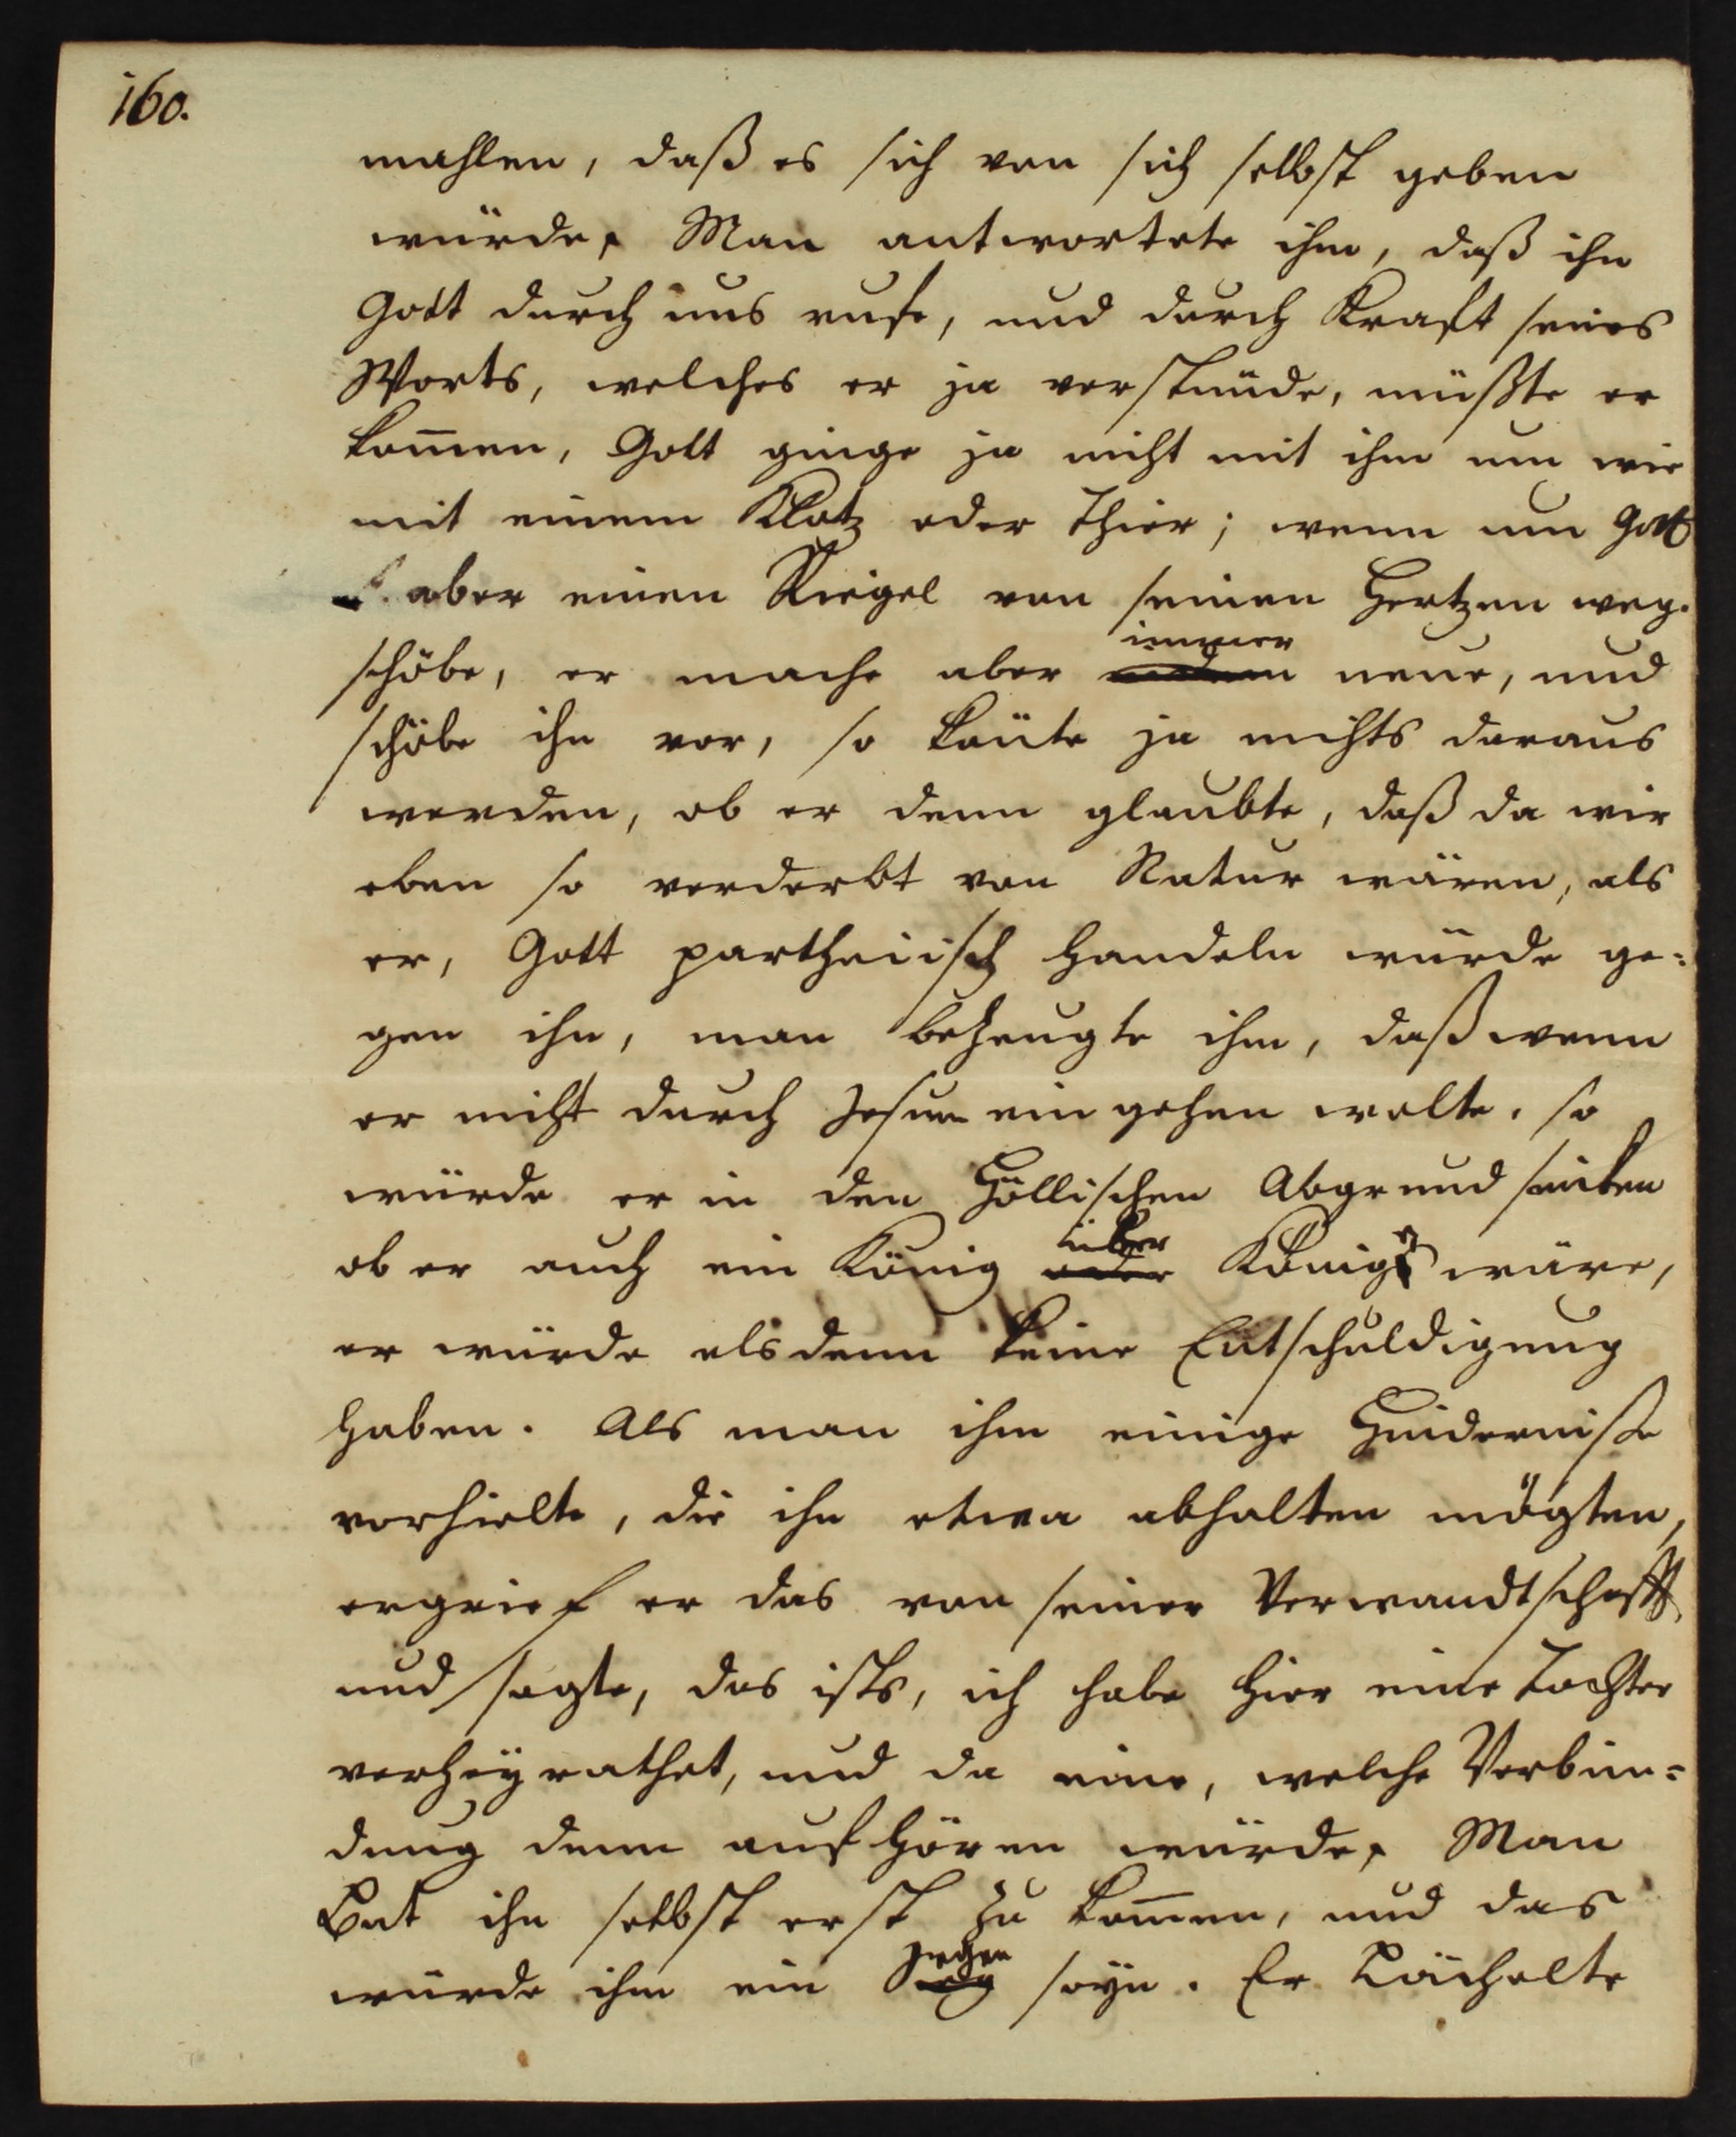 160.
mahlen, daß es sich von sich selbst geben
würde, Man antwortete ihm, daß ihn
Gott durch uns rufe, und durch Kraft seines
Worts, welches er ja verstünde, müßte er
kom̄en, Gott ginge ja nicht mit ihm um wie
mit einem Klotz oder Thier; wenn nun Gott
aber einen Riegel von seinen Hertzen weg-
immer
schöbe, er mache aber neue, und
schöbe ihn vor, so könte ja nichts daraus
werden, ob er denn glaubte, daß da wir
eben so verderbt von Natur wären, als
er, Gott partheiisch handeln würde ge-
gen ihn, man bezeugte ihm, daß wenn
er nicht durch Jesum eingehen wolte, so
würde er in den Höllischen Abgrund sincken
über
ob er auch ein König oder Könige wäre,
er würde alsdenn keine Entschuldigung
haben. Als man ihm einige Hinderniße
vorhielte, die ihn etwa abhalten mögten,
ergrief er das von seiner Verwandtschafft
und sagte, das ists, ich habe hier eine Tochter
verheyrathet, und da eine, welche Verbin-
dung denn aufhören würde, Man
Bat ihn selbst erst zu kom̄en, und das
Segen
würde ihm ein seyn. Er Lächelte